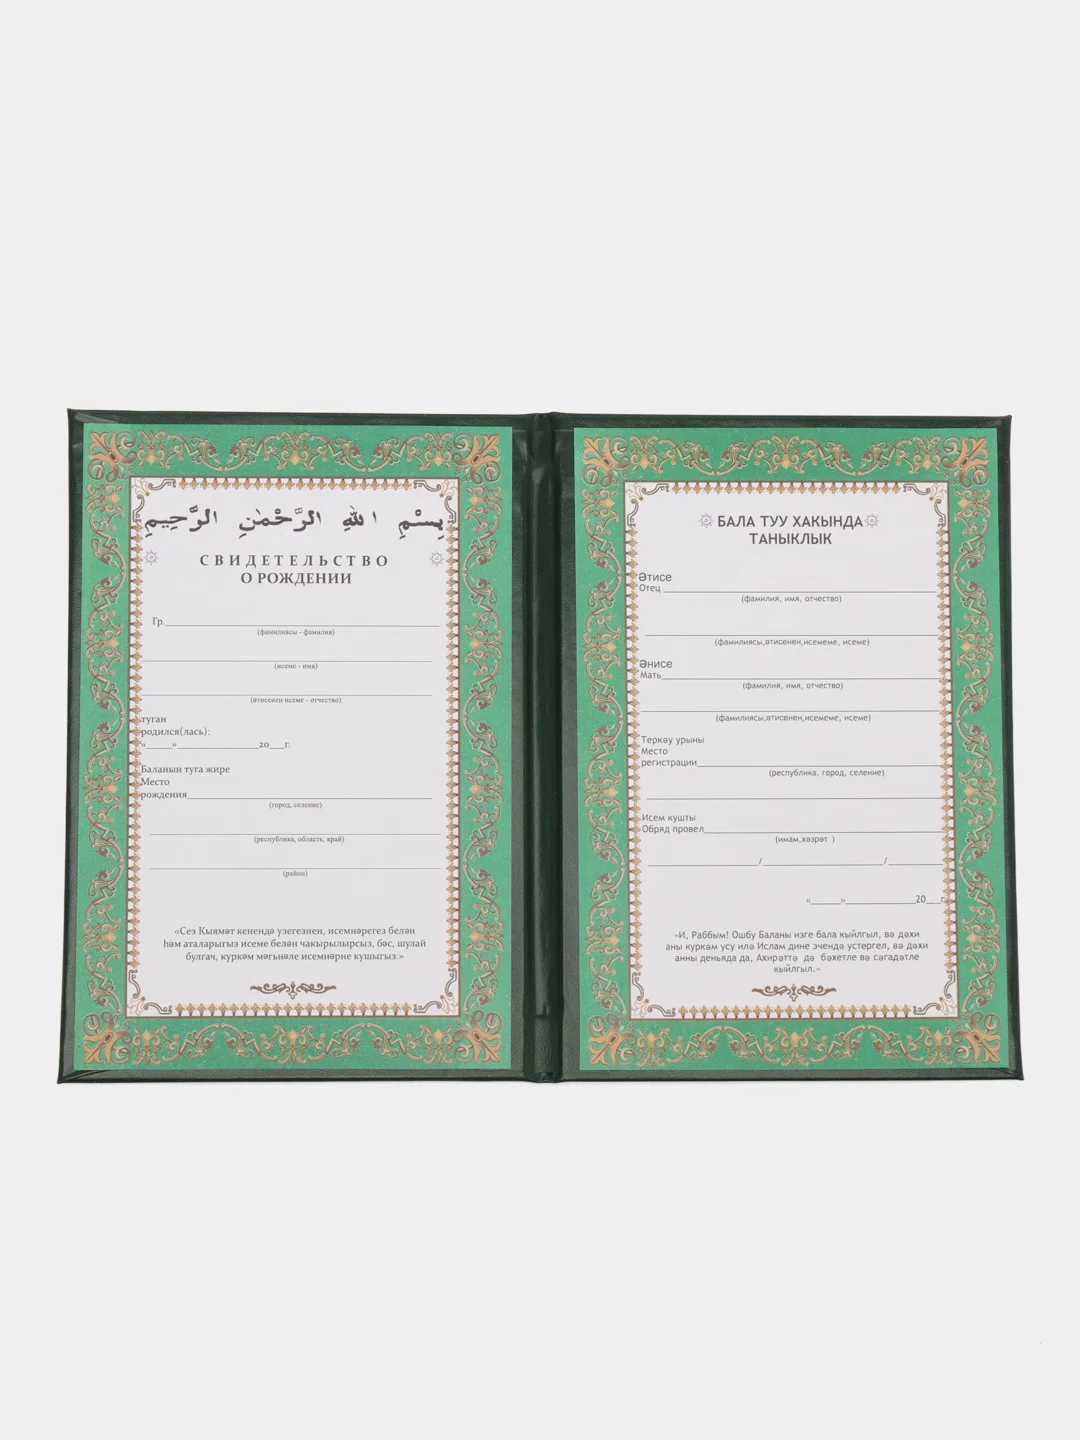 بِسْمِ اللهِ الرَّحْمٰنِ الرَّحِيمِ
СВИДЕТЕЛЬСТВО
О РОЖДЕНИИ
Гр.
(фамилиясы - фамилия)
(исеме - имя)
(әтисенен исеме - отчество)
туган
родился(лась):
«_____»________________20___г.
Баланын туга жире
Место
рождения
(город, селение)
(республика, область, край)
(район)
«Сез Кыямәт кенендә узегезнен, исемнәрегез белән
һәм аталарыгыз исеме белән чакырылырсыз, бәс, шулай
булгач, куркәм мәгънәле исемнәрне кушыгыз.»
БАЛА ТУУ ХАКЫНДА
ТАНЫКЛЫК
Әтисе
Отец
(фамилия, имя, отчество)
(фамилиясы,әтисенен,исемеме, исеме)
Әнисе
Мать
(фамилия, имя, отчество)
(фамилиясы,әтисенен,исемеме, исеме)
Теркәу урыны
Место
регистрации
(республика, город, селение)
Исем кушты
Обряд провел
(имам,хәзрәт )
/ /
«______»______________20___г.
«И, Раббым! Ошбу Баланы изге бала кыйлгыл, вә дәхи
аны куркәм усу илә Ислам дине эчендә устергел, вә дәхи
анны деньяда да, Ахирәттә дә бәхетле вә сәгадәтле
кыйлгыл.»